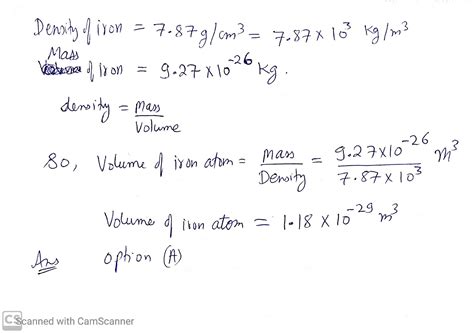 Density of iron = 7.87 g/cm³ = 7.87 × 10³ kg/m³
Mass of Iron = 9.27 × 10⁻²⁶ kg.
density = Mass / Volume
So, Volume of iron atom = Mass / Density = 9.27×10⁻²⁶ / 7.87 × 10³ m³
Volume of iron atom = 1.18 × 10⁻²⁹ m³
Ans option (A)
CS Scanned with CamScanner